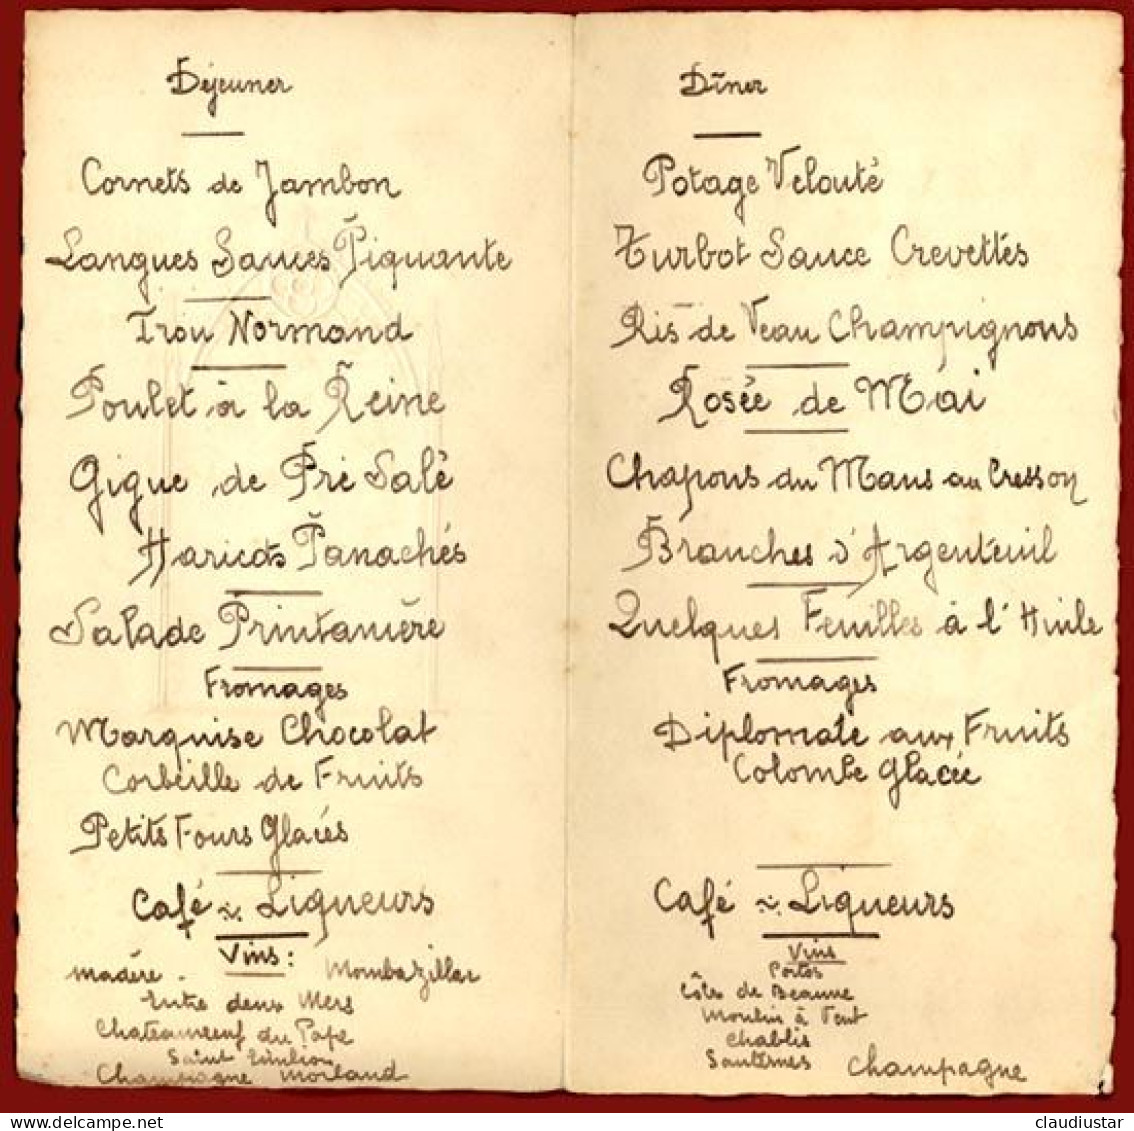 Déjeuner
Cornets de Jambon
Langues Sauces Piquante
Trou Normand
Poulet à la Reine
Gigue de Pré Salé
Haricots Panachés
Salade Printanière
Fromages
Marquise Chocolat
Corbeille de Fruits
Petits Fours Glacés
Café & Liqueurs
Vins :
Madère - Mombazillac
Entre deux Mers
Chateauneuf du Pape
Saint Emilion
Champagne Morland
Dîner
Potage Velouté
Turbot Sauce Crevettes
Ris de Veau Champignons
Rosée de Mai
Chapons du Mans au Cresson
Branches d'Argenteuil
Quelques Feuilles à l'Huile
Fromages
Diplomate aux Fruits
Colombe Glacée
Café & Liqueurs
Vins
Portos
Côte de Beaune
Moulin à Vent
Chablis
Sauternes Champagne
www.delcampe.net
claudiustar